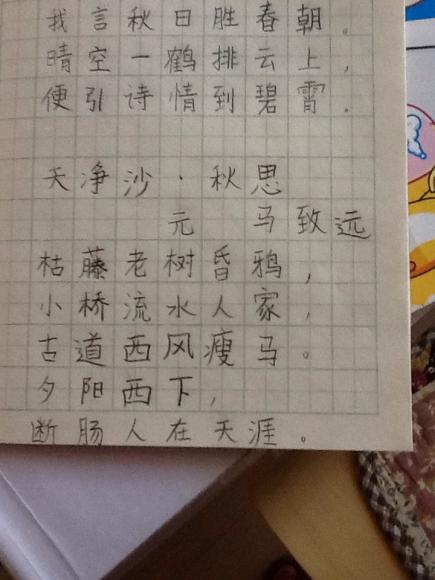 我言秋日胜春朝。
晴空一鹤排云上，
便引诗情到碧霄.
天净沙·秋思
元 马致远
枯藤老树昏鸦，
小桥流水人家，
古道西风瘦马。
夕阳西下，
断肠人在天涯。